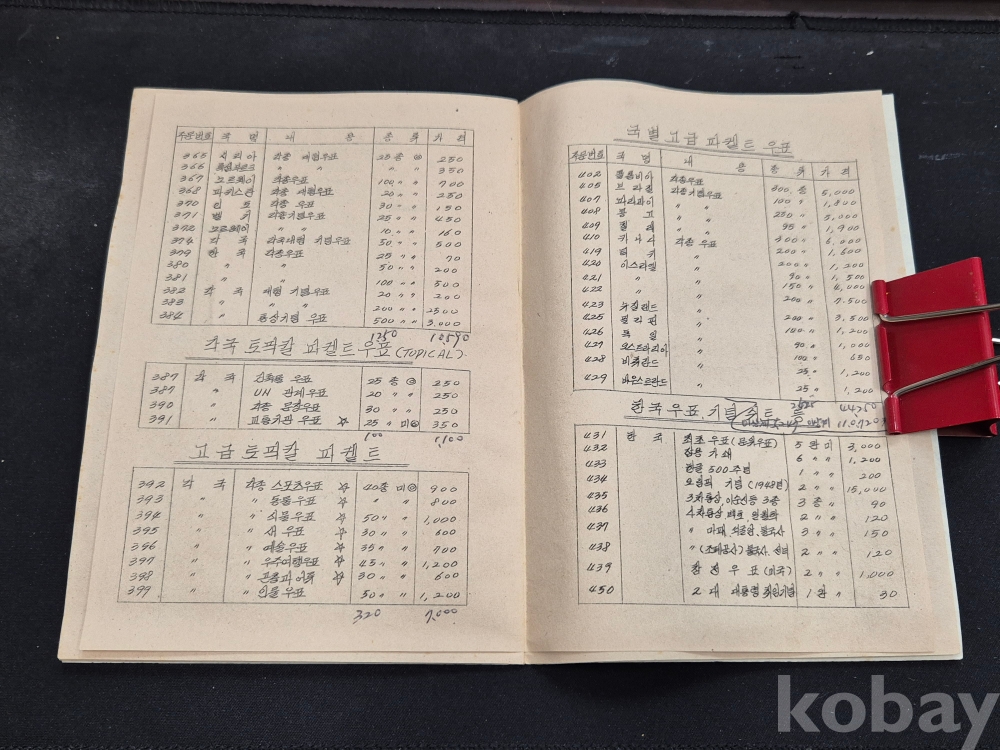 주문번호 국 명 내 용 종 류 가 격
365 시리아 각종 대형우표 25 종 250
366 〃 350
367 노르웨이 각종우표 100 〃 〃 700
368 파키스탄 각종 대형우표 20 〃 〃 250
370 인 도 각종 우표 30 〃 〃 150
371 벨 기 각종기념우표 25 〃 〃 450
372 노르웨이 〃 10 〃 〃 160
374 각 국 각국대형 기념우표 50 〃 〃 500
379 한 국 각종우표 25 〃 〃 70
380 〃 〃 50 〃 〃 200
381 〃 〃 100 〃 〃 500
382 각 국 대형 기념우표 20 〃 〃 200
383 〃 〃 〃 200 〃 〃 2500
384 통상기념 우표 500 〃 〃 3,000
1250 10,590
각국 토픽칼 파켙트우표 (TOPICAL)
387 각 국 우표 25 종 250
387 〃 UN 관계우표 20 〃 〃 250
390 〃 각종 문장우표 30 〃 〃 250
391 〃 교통기관 우표 ☆ 25 〃 미 350
100 1,100
고급토픽칼 파켙트
392 각 국 각종 스포츠우표 ☆ 40종 미 900
393 〃 〃 동물우표 ☆ 〃 〃 800
394 〃 〃 식물우표 ☆ 50 〃 〃 1,000
395 〃 〃 새 우표 ☆ 30 〃 〃 600
396 〃 〃 예술우표 ☆ 35 〃 〃 700
397 〃 〃 우주여행우표 ☆ 45 〃 〃 1,200
398 〃 〃 곤충과 어족 ☆ 30 〃 〃 600
399 〃 〃 인물우표 50 〃 〃 1,200
320 7,000
국별 고급 파켙트 우표
주문번호 국 명 내 용 종 류 가 격
402 콜롬비아 각종우표 300 종 5,000
405 브라질 각종기념우표 100 〃 1,800
407 파라과이 〃 250 〃 5,000
408 몽 고 〃 95 〃 1,900
409 칠 레 〃 300 〃 6,000
410 카나다 각종 우표 200 〃 1,600
419 터 키 〃 200 〃 1,200
420 이스라엘 〃 90 〃 1,500
421 〃 〃 150 〃 4,000
422 〃 〃 200 〃 7,500
423 뉴질랜드 〃 200 〃 3,500
425 필리핀 〃 100 〃 1,200
426 독 일 〃 90 〃 1,000
427 오스트라리아 〃 100 〃 650
428 〃 25 〃 1,200
429 〃 25 〃 1,200
44250
한국우표 기념 시트 등
11,0720
431 한 국 최초 우표 (문위우표) 5 완 미 3,000
432 첨쇄 6 〃 〃 1,200
433 한글 500주년 1 〃 〃 200
434 오림픽 기념 (1948년) 2 〃 〃 15,000
435 3차통상, 이순신등 3종 3 종 〃 90
436 4차통상 2 〃 〃 120
437 〃 마패, 불국사 3 〃 〃 150
438 〃 (조폐공사) 불국사, 2 〃 〃 120
439 참 전 우 표 (미국) 2 〃 〃 1,000
450 2 대 대통령 취임기념 1 완 〃 30
kobay